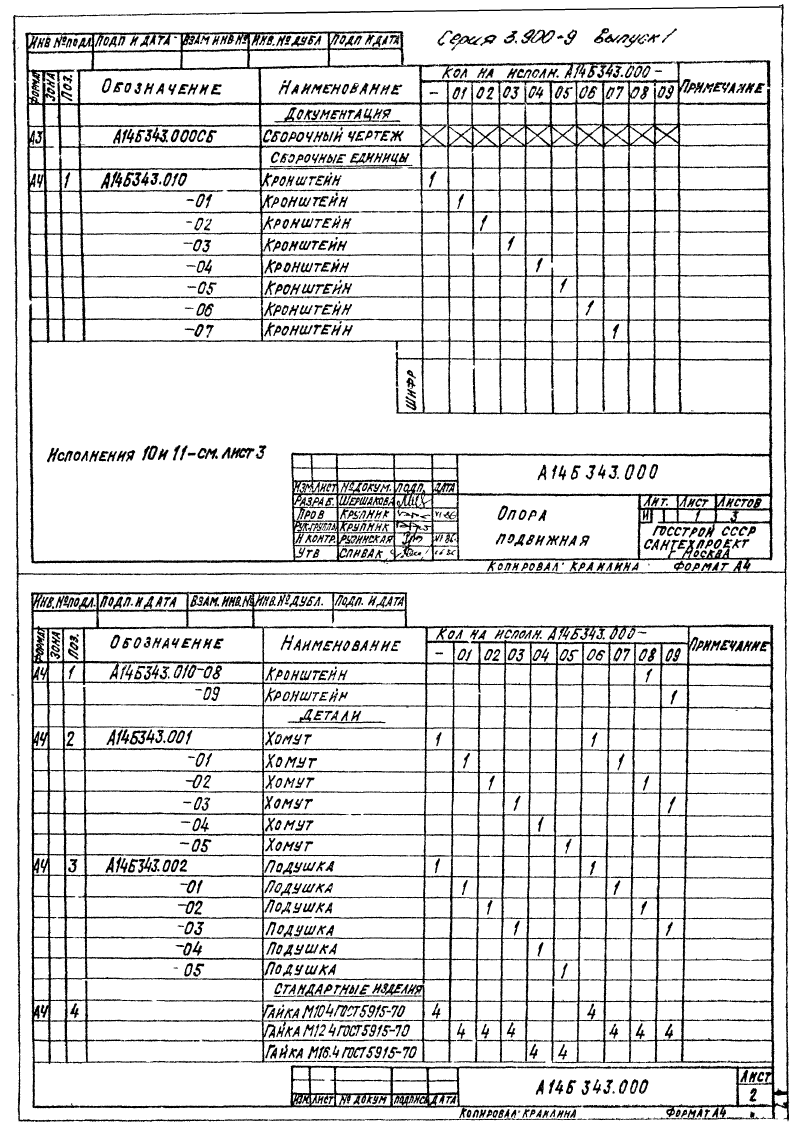 Серия 3.900-9 Выпуск 1
ИНВ № ПОДЛ. ПОДП И ДАТА ВЗАМ ИНВ № ИНВ. № ДУБЛ ПОДП И ДАТА
ФОРМАТ ЗОНА ПОЗ. ОБОЗНАЧЕНИЕ НАИМЕНОВАНИЕ КОЛ НА ИСПОЛН. А14Б343.000 – ПРИМЕЧАНИЕ
– 01 02 03 04 05 06 07 08 09
ДОКУМЕНТАЦИЯ
А3 А14Б343.000СБ СБОРОЧНЫЙ ЧЕРТЕЖ X X X X X X X X X X
СБОРОЧНЫЕ ЕДИНИЦЫ
А4 1 А14Б343.010 КРОНШТЕЙН 1
-01 КРОНШТЕЙН 1
-02 КРОНШТЕЙН 1
-03 КРОНШТЕЙН 1
-04 КРОНШТЕЙН 1
-05 КРОНШТЕЙН 1
-06 КРОНШТЕЙН 1
-07 КРОНШТЕЙН 1
ШИФР
ИСПОЛНЕНИЯ 10 И 11 – СМ. ЛИСТ 3
А14Б 343.000
ИЗМ. ЛИСТ № ДОКУМ. ПОДП. ДАТА
РАЗРАБ. ШЕРШАКОВА
ПРОВ КРУПНИК VI 86
РУК. ГРУППЫ КРУПНИК
Н КОНТР. РУДИНСКАЯ VI 86
УТВ СПИВАК
ОПОРА
ПОДВИЖНАЯ
ЛИТ. ЛИСТ ЛИСТОВ
И 1 3
ГОССТРОЙ СССР
САНТЕХПРОЕКТ
МОСКВА
КОПИРОВАЛ: КРАИЛИНА ФОРМАТ А4
ИНВ. № ПОДЛ. ПОДП. И ДАТА ВЗАМ. ИНВ. № ИНВ. № ДУБЛ. ПОДП. И ДАТА
ФОРМАТ ЗОНА ПОЗ. ОБОЗНАЧЕНИЕ НАИМЕНОВАНИЕ КОЛ НА ИСПОЛН. А14Б343.000 – ПРИМЕЧАНИЕ
– 01 02 03 04 05 06 07 08 09
А4 1 А14Б343.010-08 КРОНШТЕЙН 1
-09 КРОНШТЕЙН 1
ДЕТАЛИ
А4 2 А14Б343.001 ХОМУТ 1 1
-01 ХОМУТ 1 1
-02 ХОМУТ 1 1
-03 ХОМУТ 1 1
-04 ХОМУТ 1
-05 ХОМУТ 1
А4 3 А14Б343.002 ПОДУШКА 1 1
-01 ПОДУШКА 1 1
-02 ПОДУШКА 1 1
-03 ПОДУШКА 1 1
-04 ПОДУШКА 1
-05 ПОДУШКА 1
СТАНДАРТНЫЕ ИЗДЕЛИЯ
А4 4 ГАЙКА М10.4 ГОСТ 5915-70 4 4
ГАЙКА М12.4 ГОСТ 5915-70 4 4 4 4 4 4
ГАЙКА М16.4 ГОСТ 5915-70 4 4
А14Б 343.000
ИЗМ. ЛИСТ № ДОКУМ ПОДПИСЬ ДАТА
ЛИСТ
2
КОПИРОВАЛ: КРАИЛИНА ФОРМАТ А4